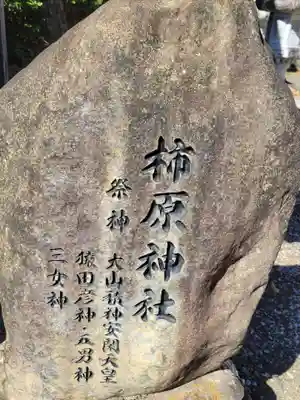 柿原神社
祭神 大山積神安閑天皇
猿田彦神・五男神
三女神